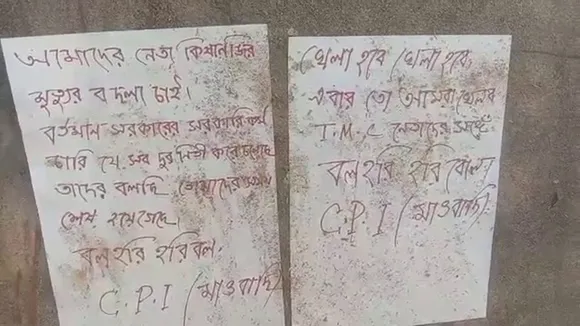 আমাদের নেতা কিষানজির
মৃত্যুর বদলা চাই।
বর্তমান সরকারের সরকারি কর্ম
চারি যে সব দুর্নীতী করে চলেছে
তাদের বলছি তোমাদের সময়
শেষ হয়ে গেছে।
বল হরি হরি বল
C.P.I (মাওবাদী)
খেলা হবে খেলা হবে,
এবার তো আমরা খেলব
T.M.C নেতাদের সঙ্গে
বল হরি হরি বোল
C.P.I (মাওবাদী)